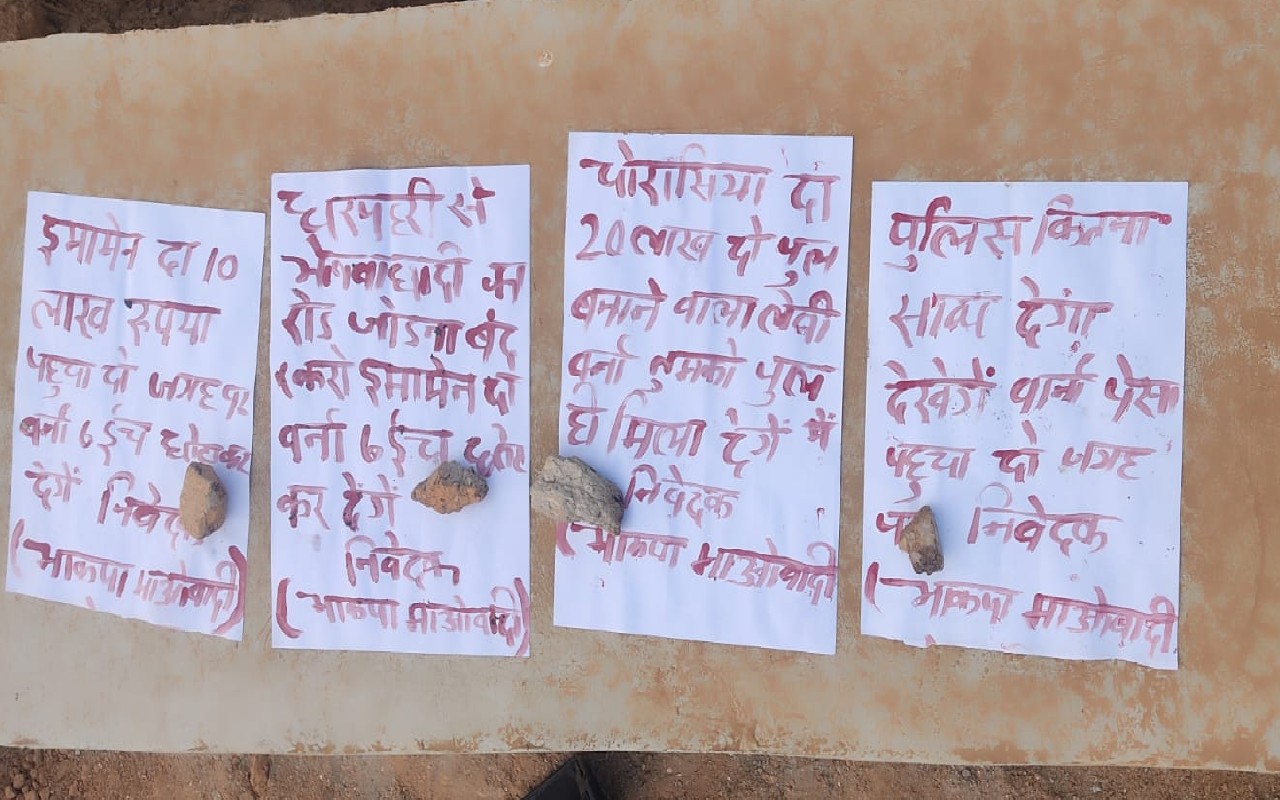 इमामेन दा 10
लाख रुपया
पहुचा दो जगह पर
वर्ना 6 ईंच छोटाकर
देगें निवेद
(भाकपा माओवादी)
से
का
रोड जोडना बंद
करो इमामेन दा
वर्ना 6 ईंच छोटा
कर देंगे
निवेदक
(भाकपा माओवादी)
चोरासिया दा
20 लाख दो पुल
बनाने वाला लेवी
वर्ना तुमको पुल
मिला देगें में
निवेदक
(भाकपा माओवादी
पुलिस कितना
साथ देगां
देखेगें वार्ना पैसा
पहुचा दो जगह
निवेदक
(भाकपा माओवादी